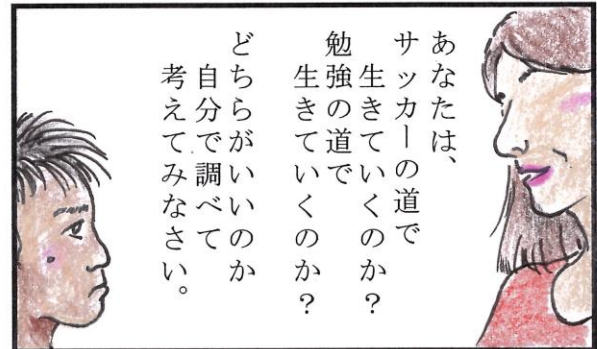 あなたは、
サッカーの道で
生きていくのか？
勉強の道で
生きていくのか？
どちらがいいのか
自分で調べて
考えてみなさい。